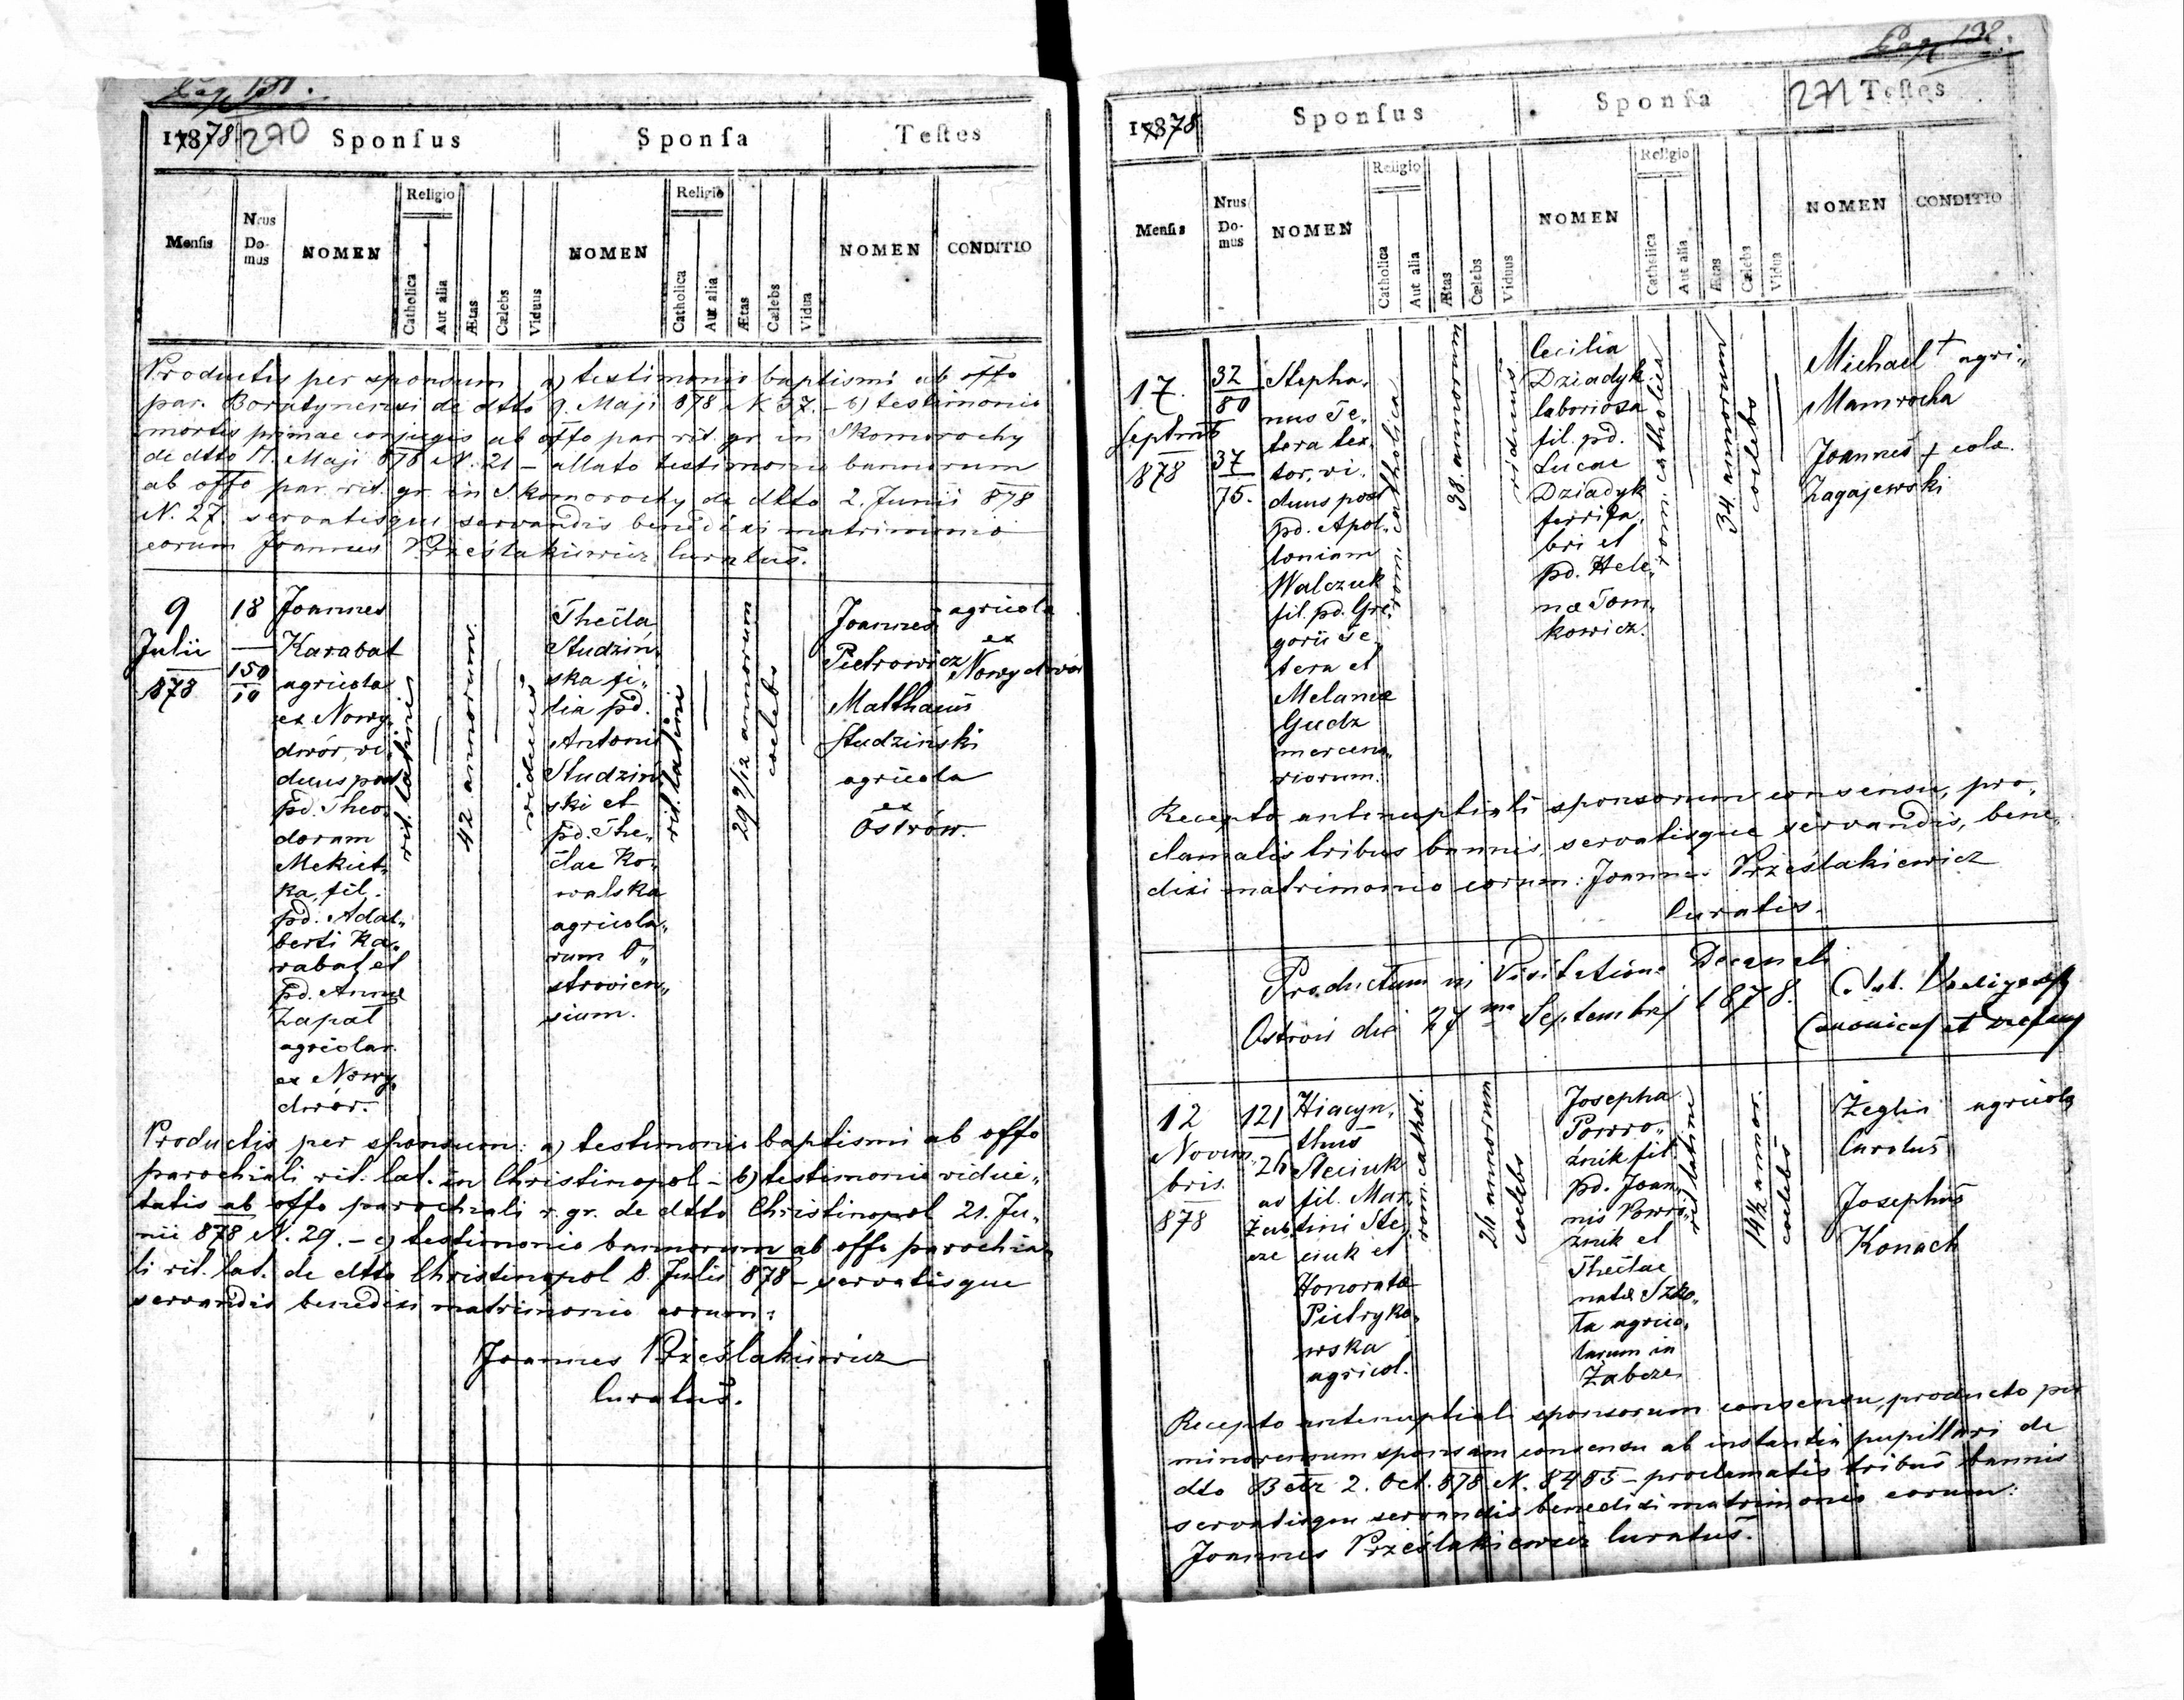 Pag 131.
1878 270 Sponsus Sponsa Testes
Mensis Nrus Domus NOMEN Religio Catholica Aut alia Ætas Cælebs Viduus NOMEN Religio Catholica Aut alia Ætas Cælebs Vidua NOMEN CONDITIO
Productis per sponsum a) testimonio baptismi ab offo
par. Boratynensi de dtto 9. Maji 878 N 37. – b) testimonio
mortis primae conjugis ab offo par rit. gr. in Skomorochy
de dtto 17. Maji 878 N. 21 – allato testimonio bannorum
ab offo par. rit. gr. in Skomorochy de dtto 2. Junii 878
N. 27. servatisque servandis benedixi matrimonio
eorum Joannes Prześlakiewicz Curatus.
9
Julii
878
18
150
10
Joannes
Karabat
agricola
ex Nowy
dwór, vi
duus post
pd. Theo
doram
Mekiet
ka, fil.
pd. Adal„
berti Ka„
rabat et
pd. Annæ
Zapał
agricolar.
ex Nowy
dwór.
rit. latini
42 annorum.
viduus
Thecla
Studziń
ska fi„
lia pd.
Antonii
Studziń
ski et
pd. The„
clae Ko„
walska
agricola„
rum O„
strovien„
sium.
rit. latini
29 9/12 annorum
coelebs
Joannes agricola
Pietrowicz ex Nowydwór
Matthaeus
Studziński
agricola
ex
Ostrów.
Productis per sponsum: a) testimonio baptismi ab offo
parochiali rit. lat. in Christinopol – b) testimonio vidui„
tatis ab offo parochiali r. gr. de dtto Christinopol 21. Ju„
nii 878 N. 29. – c) testimonio bannorum ab offo parochia„
li rit. lat. de dtto Christinopol 8. Julii 878 – servatisque
servandis benedixi matrimonio eorum:
Joannes Prześlakiewicz
Curatus.
Pag 132.
1878 Sponsus Sponsa 271 Testes
Mensis Nrus Domus NOMEN Religio Catholica Aut alia Ætas Cælebs Viduus NOMEN Religio Catholica Aut alia Ætas Cælebs Vidua NOMEN CONDITIO
17.
Septmb
878
32
80
37
75.
Stepha„
nus Te„
tera tex„
tor, vi„
duus post
pd. Apol„
loniam
Walczuk
fil. pd. Gre„
gorii Te„
tera et
Melaniæ
Gudz
mercena„
riorum.
rom. catholica
38 annorum
viduus
Cecilia
Dziadyk
laboriosa
fil. pd.
Lucae
Dziadyk
ferrifa„
bri et
pd. Hele„
næ Tom„
kowicz.
rom. catholica
34 annorum
coelebs
Michael + agri„
Mamrocha
Joannes + cola.
Zagajewski
Recepto antenuptiali sponsorum consensu, pro„
clamatis tribus bannis, servatisque servandis, bene„
dixi matrimonio eorum: Joannes Prześlakiewicz
Curatus.
Productum in Visitatione Decanali
Ostrovii die 27ma Septembris 1878.
Canonicus et Decanus
12
Novem„
bris
878
121
26
ad
Żab
cze
Hiacyn„
thus
Steciuk
fil. Mar„
tini Ste„
ciuk et
Honoratæ
Pietryko„
wska
agricol.
rom. cathol.
26 annorum
coelebs
Josepha
Powro„
źnik fil.
pd. Joan„
nis Powro„
źnik et
Theclae
natæ Szko„
ta agrico„
larum in
Żabcze
rit latini
14 1/2 annor.
coelebs
Żeglin agricola
Carolus
Josephus
Konach
Recepto antenuptiali sponsorum consensu, producto per
minorennem sponsam consensu ab instantia pupillari de
dto Bełz 2. Oct. 878 N. 8485 – proclamatis tribus bannis
servatisque servandis benedixi matrimonio eorum:
Joannes Prześlakiewicz Curatus.